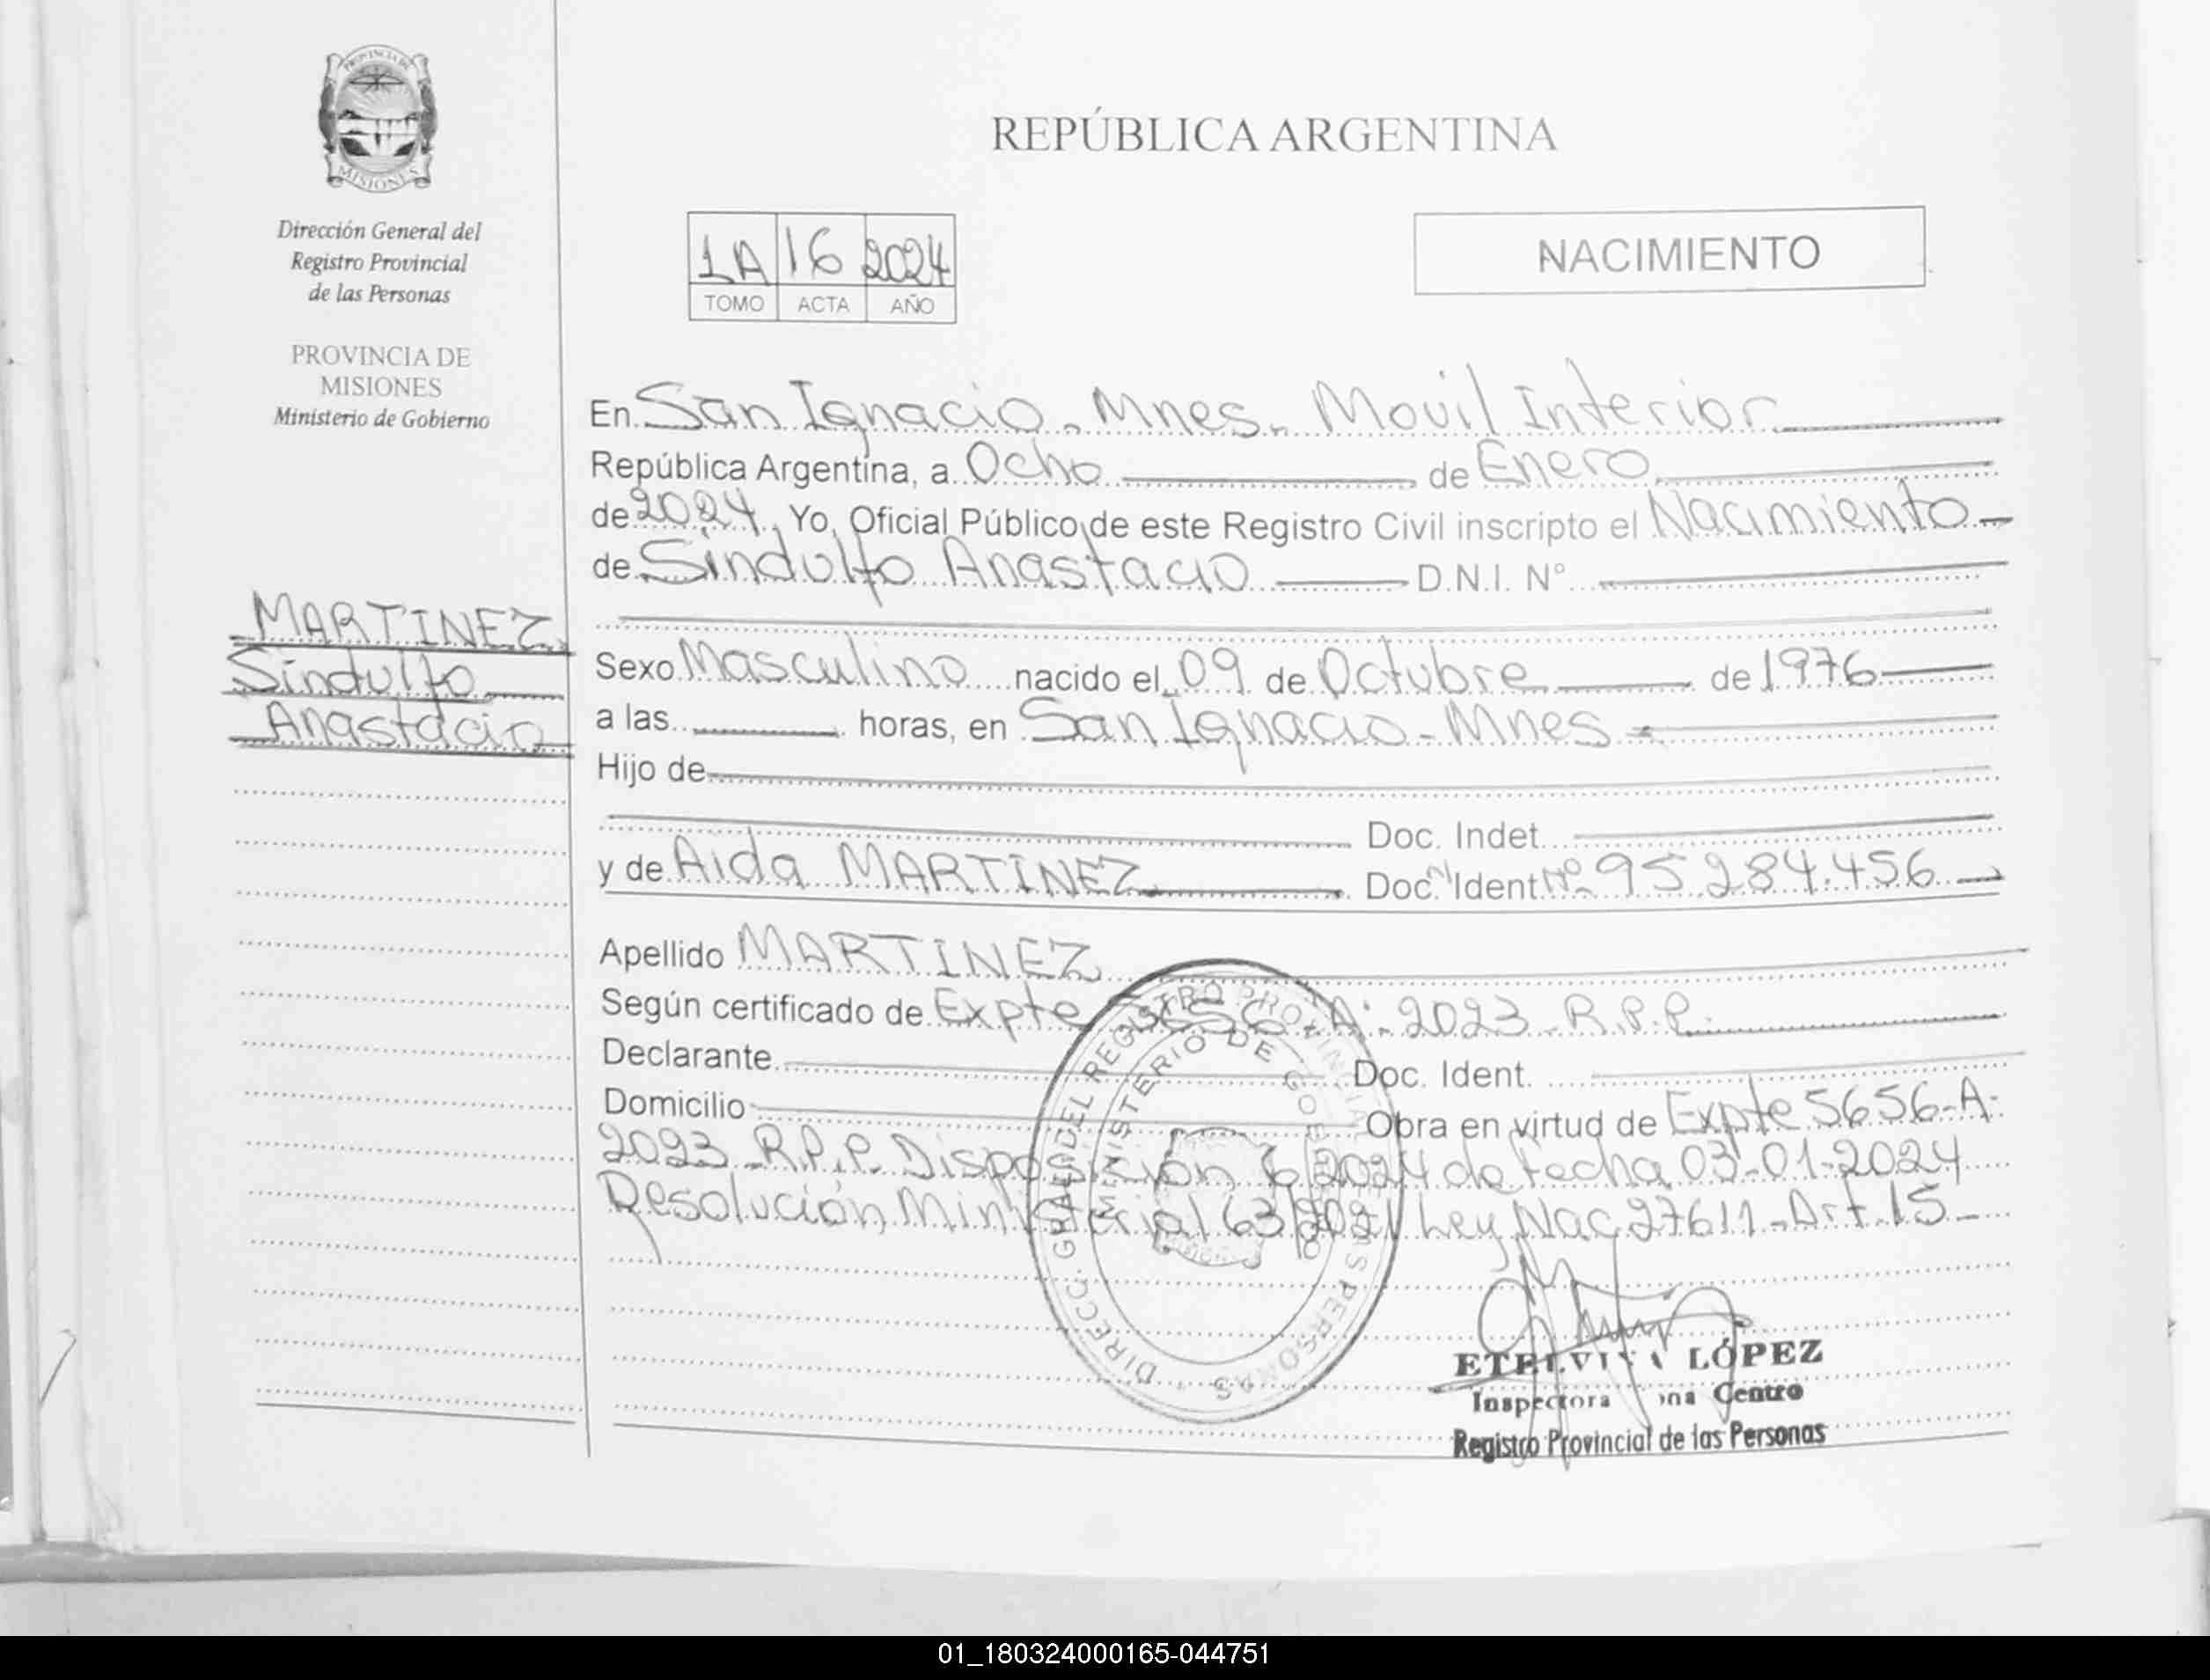 PROVINCIA DE
MISIONES
Dirección General del
Registro Provincial
de las Personas
PROVINCIA DE
MISIONES
Ministerio de Gobierno
MARTINEZ
Sindulfo
Anastacio
REPÚBLICA ARGENTINA
1A 16 2024
TOMO ACTA AÑO
NACIMIENTO
En San Ignacio - Mnes - Movil Interior
República Argentina, a Ocho de Enero
de 2024, Yo, Oficial Público de este Registro Civil inscripto el Nacimiento
de Sindulfo Anastacio D.N.I. N°
Sexo Masculino nacido el 09 de Octubre de 1976
a las horas, en San Ignacio - Mnes -
Hijo de
Doc. Indet.
y de Aida MARTINEZ Doc. Ident. N° 95284.456
Apellido MARTINEZ
Según certificado de Expte 5656-A-2023 R.P.P.
Declarante Doc. Ident.
Domicilio Obra en virtud de Expte 5656-A-
2023 R.P.P. Disposición 6/2024 de fecha 03-01-2024
Resolución Ministerial 63/2021 Ley Nac 27611 - Art. 15 -
DIRECC. GRAL. DEL REGISTRO PROVINCIAL DE LAS PERSONAS
MINISTERIO DE GOBIERNO
ETELVINA LÓPEZ
Inspectora Zona Centro
Registro Provincial de las Personas
01_180324000165-044751